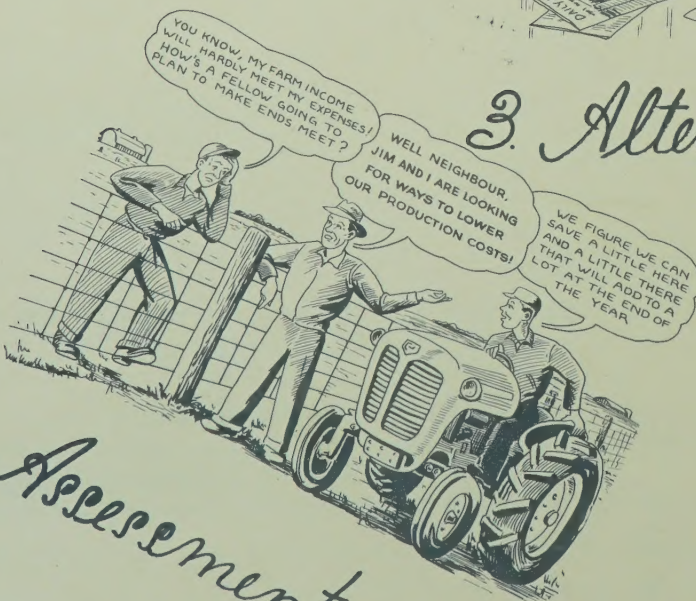 DAILY
3. Alte
YOU KNOW, MY FARM INCOME
WILL HARDLY MEET MY EXPENSES!
HOW'S A FELLOW GOING TO
PLAN TO MAKE ENDS MEET?
WELL NEIGHBOUR,
JIM AND I ARE LOOKING
FOR WAYS TO LOWER
OUR PRODUCTION COSTS!
WE FIGURE WE CAN
SAVE A LITTLE HERE
AND A LITTLE THERE
THAT WILL ADD TO A
LOT AT THE END OF
THE YEAR
Assessment